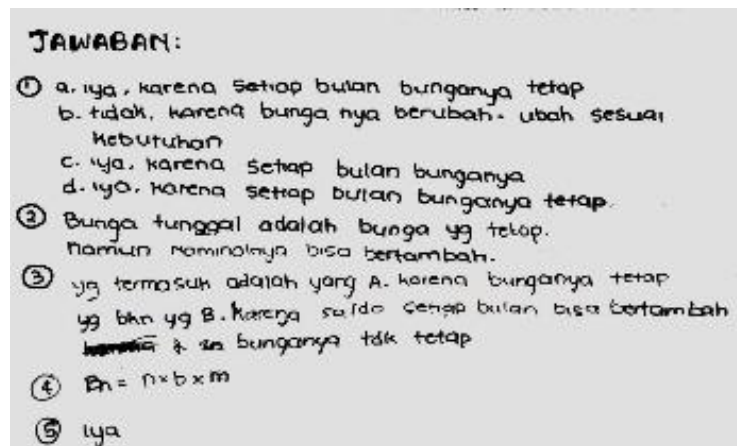 JAWABAN:
① a. iya, karena setiap bulan bunganya tetap
b. tidak, karena bunga nya berubah-ubah sesuai
kebutuhan
c. iya, karena setiap bulan bunganya
d. iya, karena setiap bulan bunganya tetap.
② Bunga tunggal adalah bunga yg tetap.
namun nominalnya bisa bertambah.
③ yg termasuk adalah yang A. karena bunganya tetap
yg bkn yg B. karena saldo setiap bulan bisa bertambah
& bunganya tdk tetap
④ Bn = n×b×m
⑤ iya